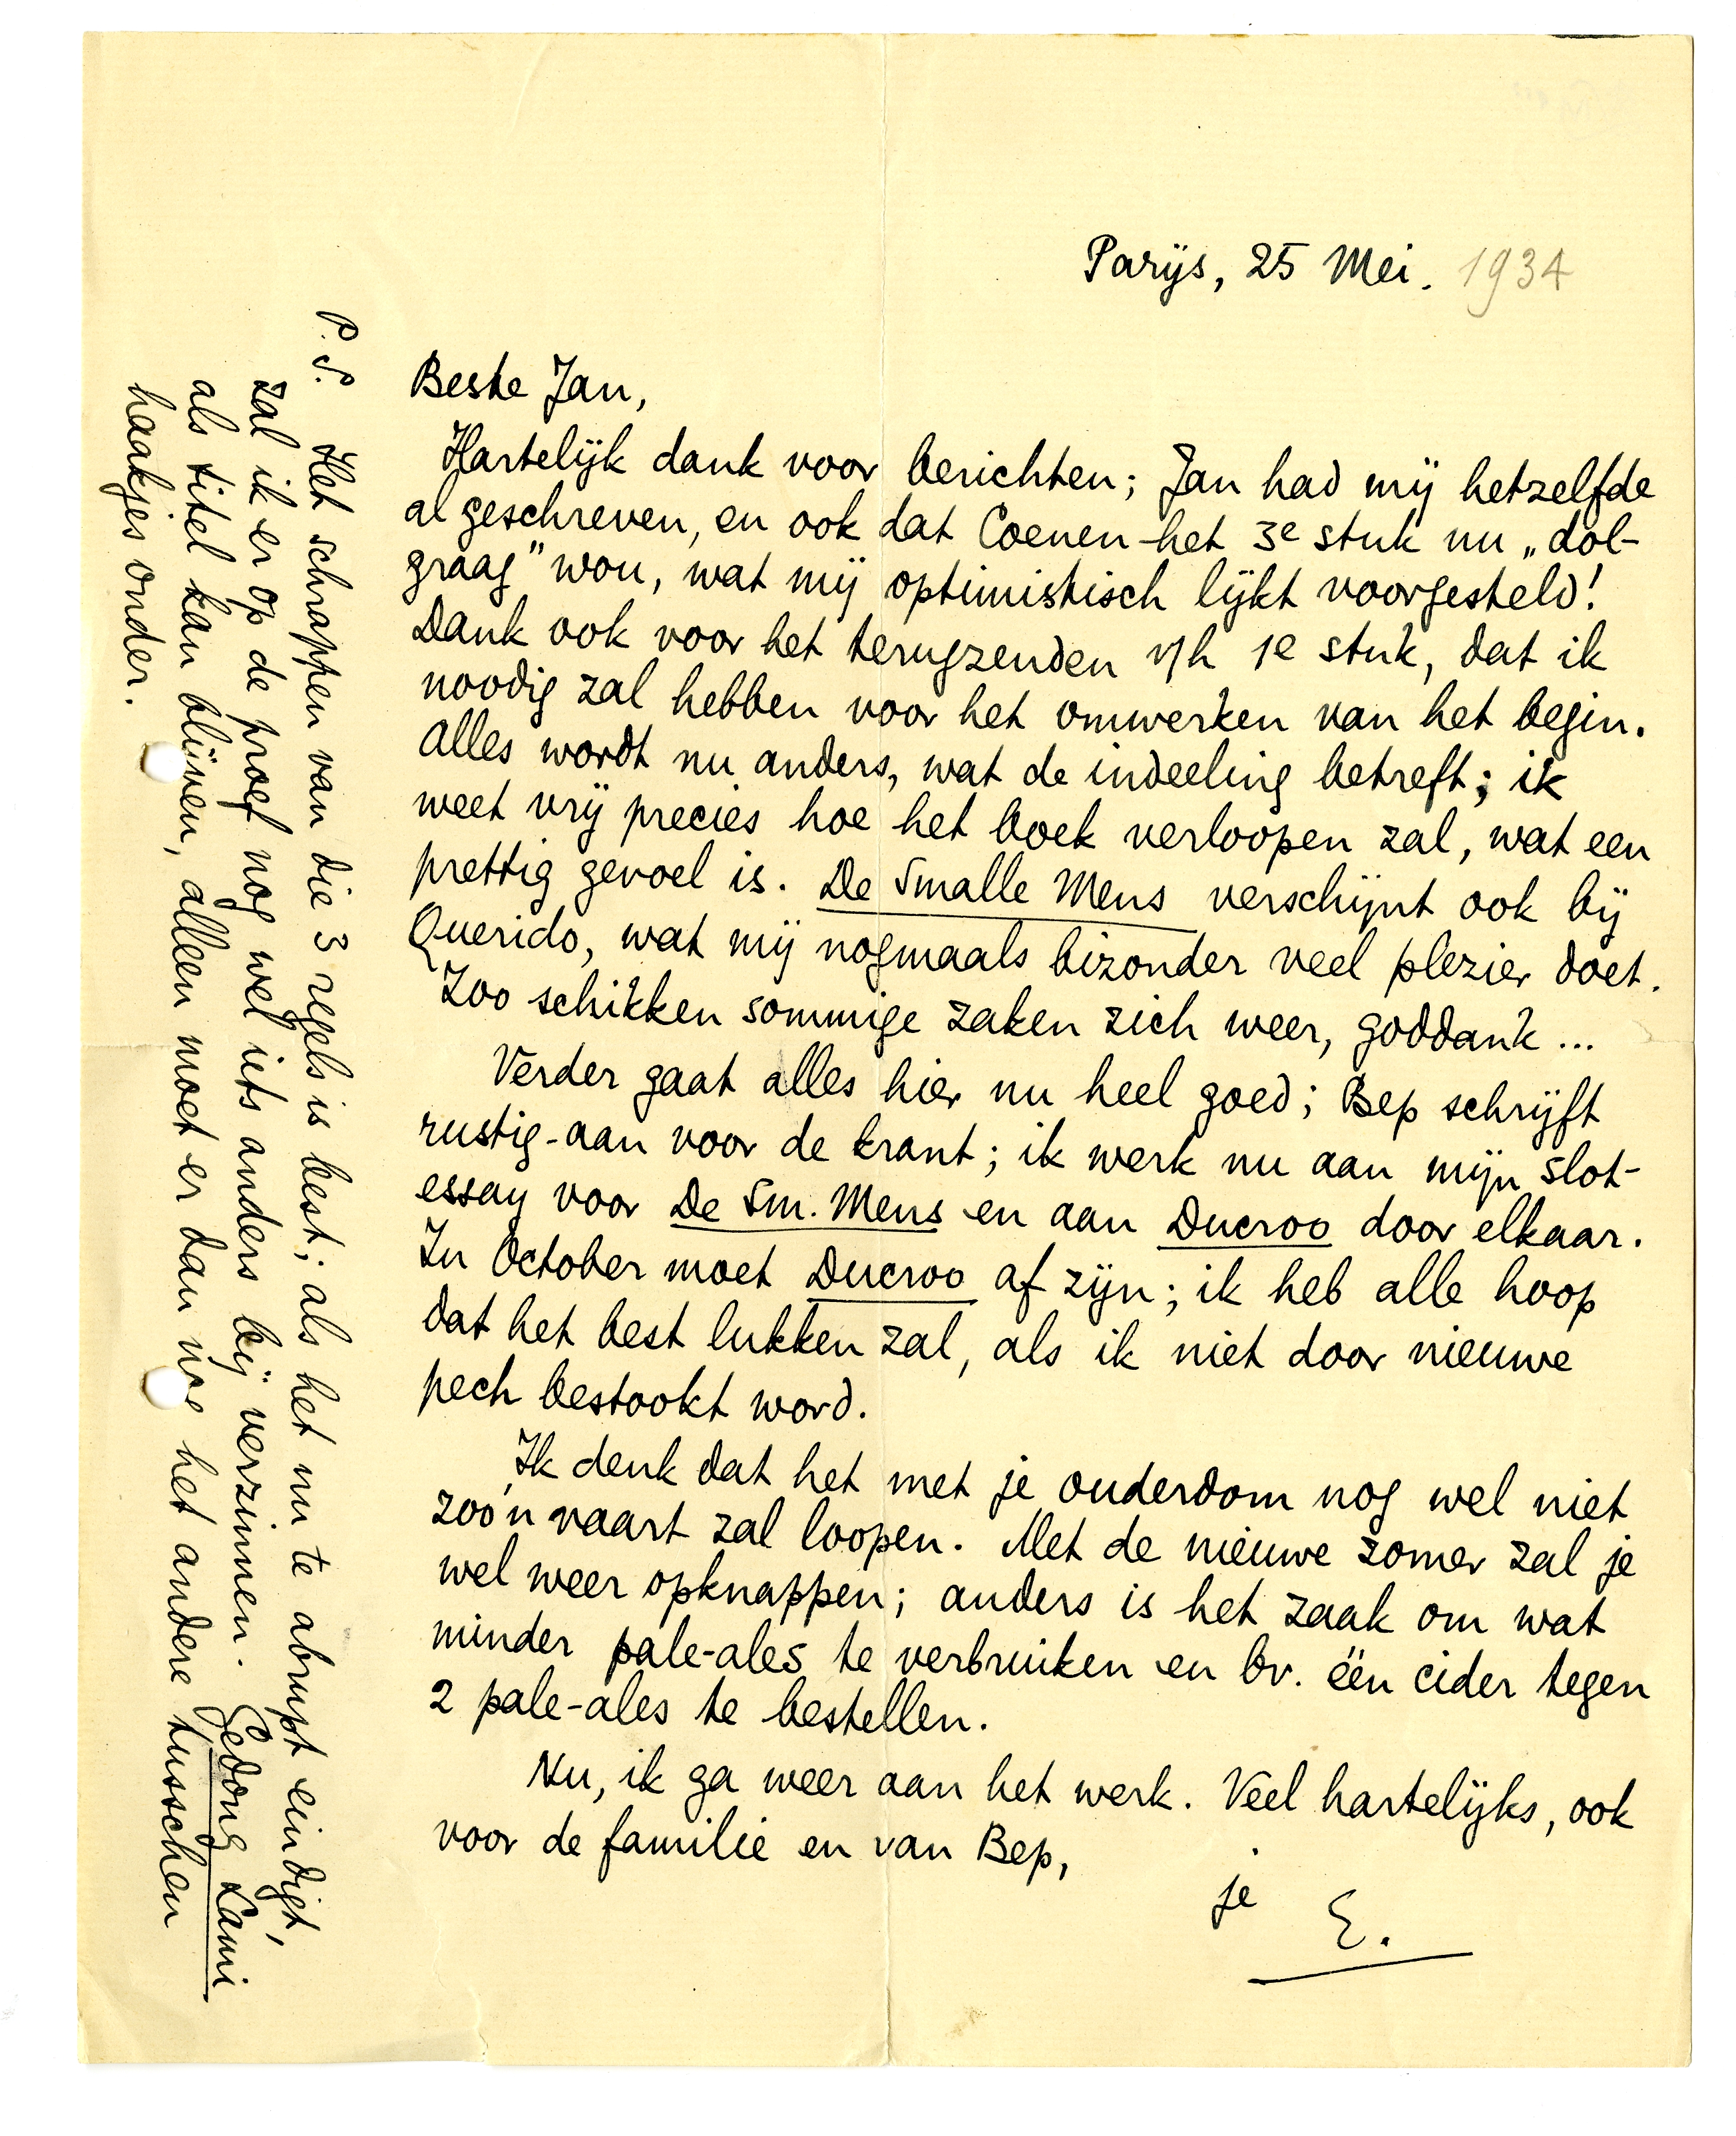 Parijs, 25 Mei. 1934
Beste Jan,
Hartelijk dank voor berichten; Jan had mij hetzelfde
al geschreven, en ook dat Coenen het 3e stuk nu „dol-
graag" wou, wat mij optimistisch lijkt voorgesteld!
Dank ook voor het terugzenden v/h 1e stuk, dat ik
noodig zal hebben voor het omwerken van het begin.
Alles wordt nu anders, wat de indeeling betreft; ik
weet vrij precies hoe het boek verloopen zal, wat een
prettig gevoel is. De Smalle Mens verschijnt ook bij
Querido, wat mij nogmaals bizonder veel plezier doet.
Zoo schikken sommige zaken zich weer, goddank ...
Verder gaat alles hier nu heel goed; Bep schrijft
rustig-aan voor de krant; ik werk nu aan mijn slot-
essay voor De Sm. Mens en aan Ducroo door elkaar.
In October moet Ducroo af zijn; ik heb alle hoop
dat het best lukken zal, als ik niet door nieuwe
pech bestookt word.
Ik denk dat het met je ouderdom nog wel niet
zoo'n vaart zal loopen. Met de nieuwe zomer zal je
wel weer opknappen; anders is het zaak om wat
minder pale-ales te verbruiken en bv. één cider tegen
2 pale-ales te bestellen.
Nu, ik ga weer aan het werk. Veel hartelijks, ook
voor de familie en van Bep,
je
E.
P.S. Het schrappen van die 3 regels is best; als het nu te abrupt eindigt,
zal ik er op de proef nog wel iets anders bij verzinnen. Gedong Lami
als titel kan blijven, alleen moet er dan het andere tusschen
haakjes onder.